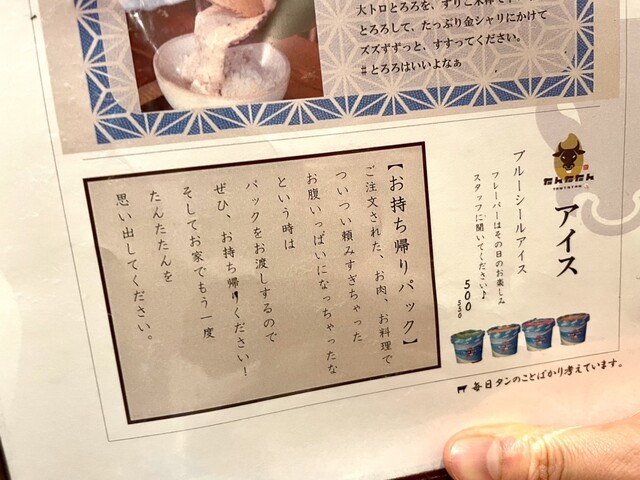 大トロとろろを、すりこ木棒で
とろろして、たっぷり金シャリにかけて
ズズずずっと、すすってください。
#とろろはいいよなぁ
たんたたん
TANTATAN
アイス
ブルーシールアイス
フレーバーはその日のお楽しみ
スタッフに聞いてください♪
500
550
【お持ち帰りパック】
ご注文された、お肉、お料理で
ついつい頼みすぎちゃった
お腹いっぱいになっちゃったな
という時は
パックをお渡しするので
ぜひ、お持ち帰りください!
そしてお家でもう一度
たんたたんを
思い出してください。
毎日タンのことばかり考えています。